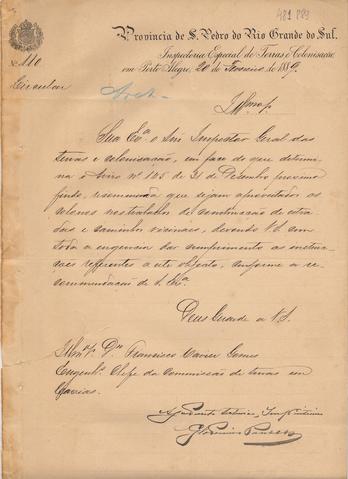 481 893
Provincia de S. Pedro do Rio Grande do Sul.
Inspectoria Especial de Terras e Colonisação
Nº 110
em Porto Alegre, 20 de Fevereiro de 1889.
Circular
Arch.
Sua Exª o Snr. Inspector Geral das
terras e colonisação, em face do que determi-
na o Aviso nº 105 de 31 de Dezembro proximo
findo, recommenda que sejam aproveitados os
colonos nos trabalhos de construcção de estra-
das e caminhos vicinaes, devendo V.S. com
toda a urgencia dar cumprimento as instruc-
ções referentes a este objecto, conforme a re-
commendação de S. Exª.
Deus Guarde a V.S.
Illmº Sr. Dr. Francisco Xavier Gomes
Engenhº Chefe da Commissão de terras em
Caxias.
Ajudante